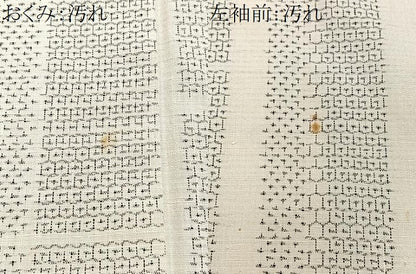 おくみ:汚れ
左袖前:汚れ